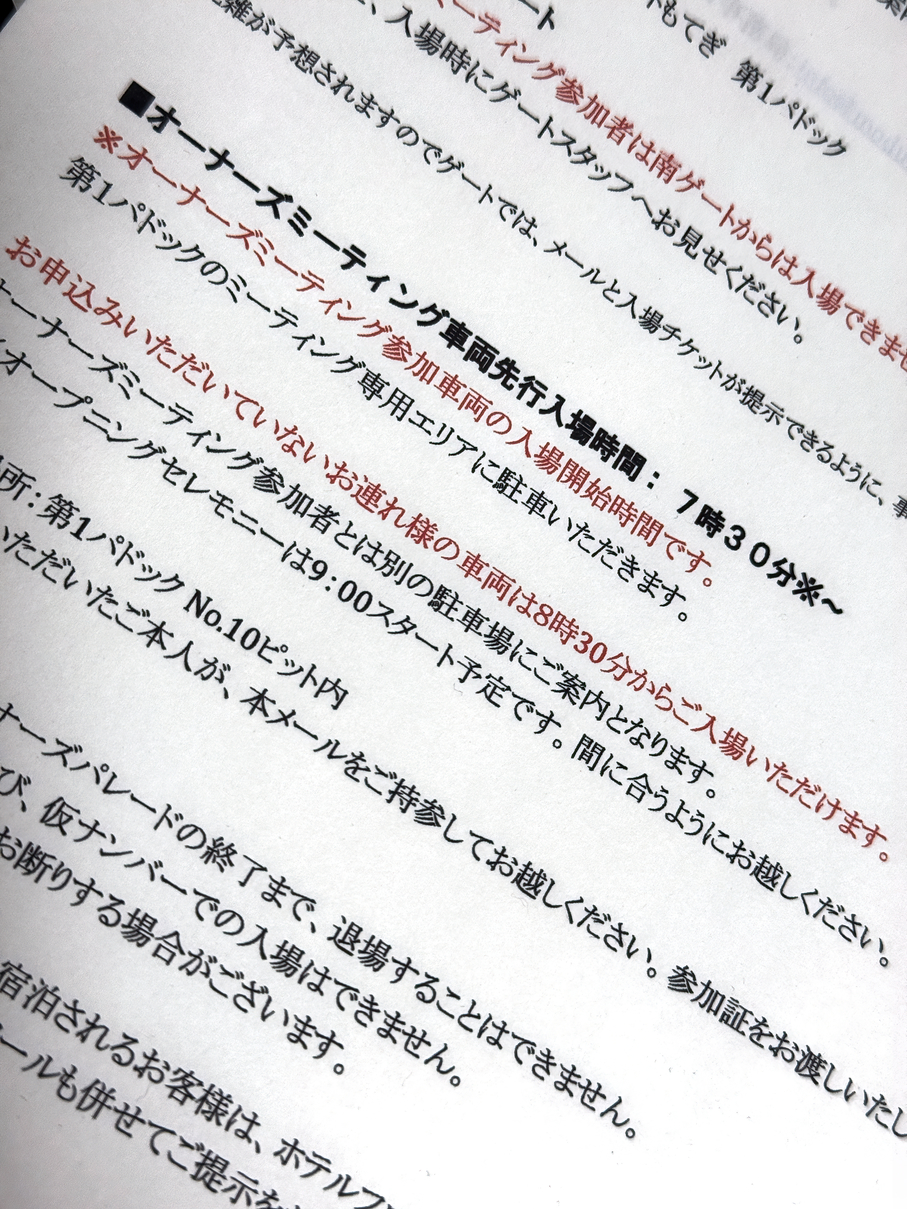 ート
もてぎ 第1パドック
ミーティング参加者は南ゲートからは入場できませ
、入場時にゲートスタッフへお見せください。
混雑が予想されますのでゲートでは、メールと入場チケットが提示できるように、事
■オーナーズミーティング車両先行入場時間： 7時30分※~
※オーナーズミーティング参加車両の入場開始時間です。
第1パドックのミーティング専用エリアに駐車いただきます。
お申込みいただいていないお連れ様の車両は8時30分からご入場いただけます。
ナーズミーティング参加者とは別の駐車場にご案内となります。
オープニングセレモニーは9：00スタート予定です。間に合うようにお越しください。
所：第1パドック No.10ピット内
いただいたご本人が、本メールをご持参してお越しください。参加証をお渡しいたし
ナーズパレードの終了まで、退場することはできません。
び、仮ナンバーでの入場はできません。
お断りする場合がございます。
宿泊されるお客様は、ホテルフ
メールも併せてご提示を